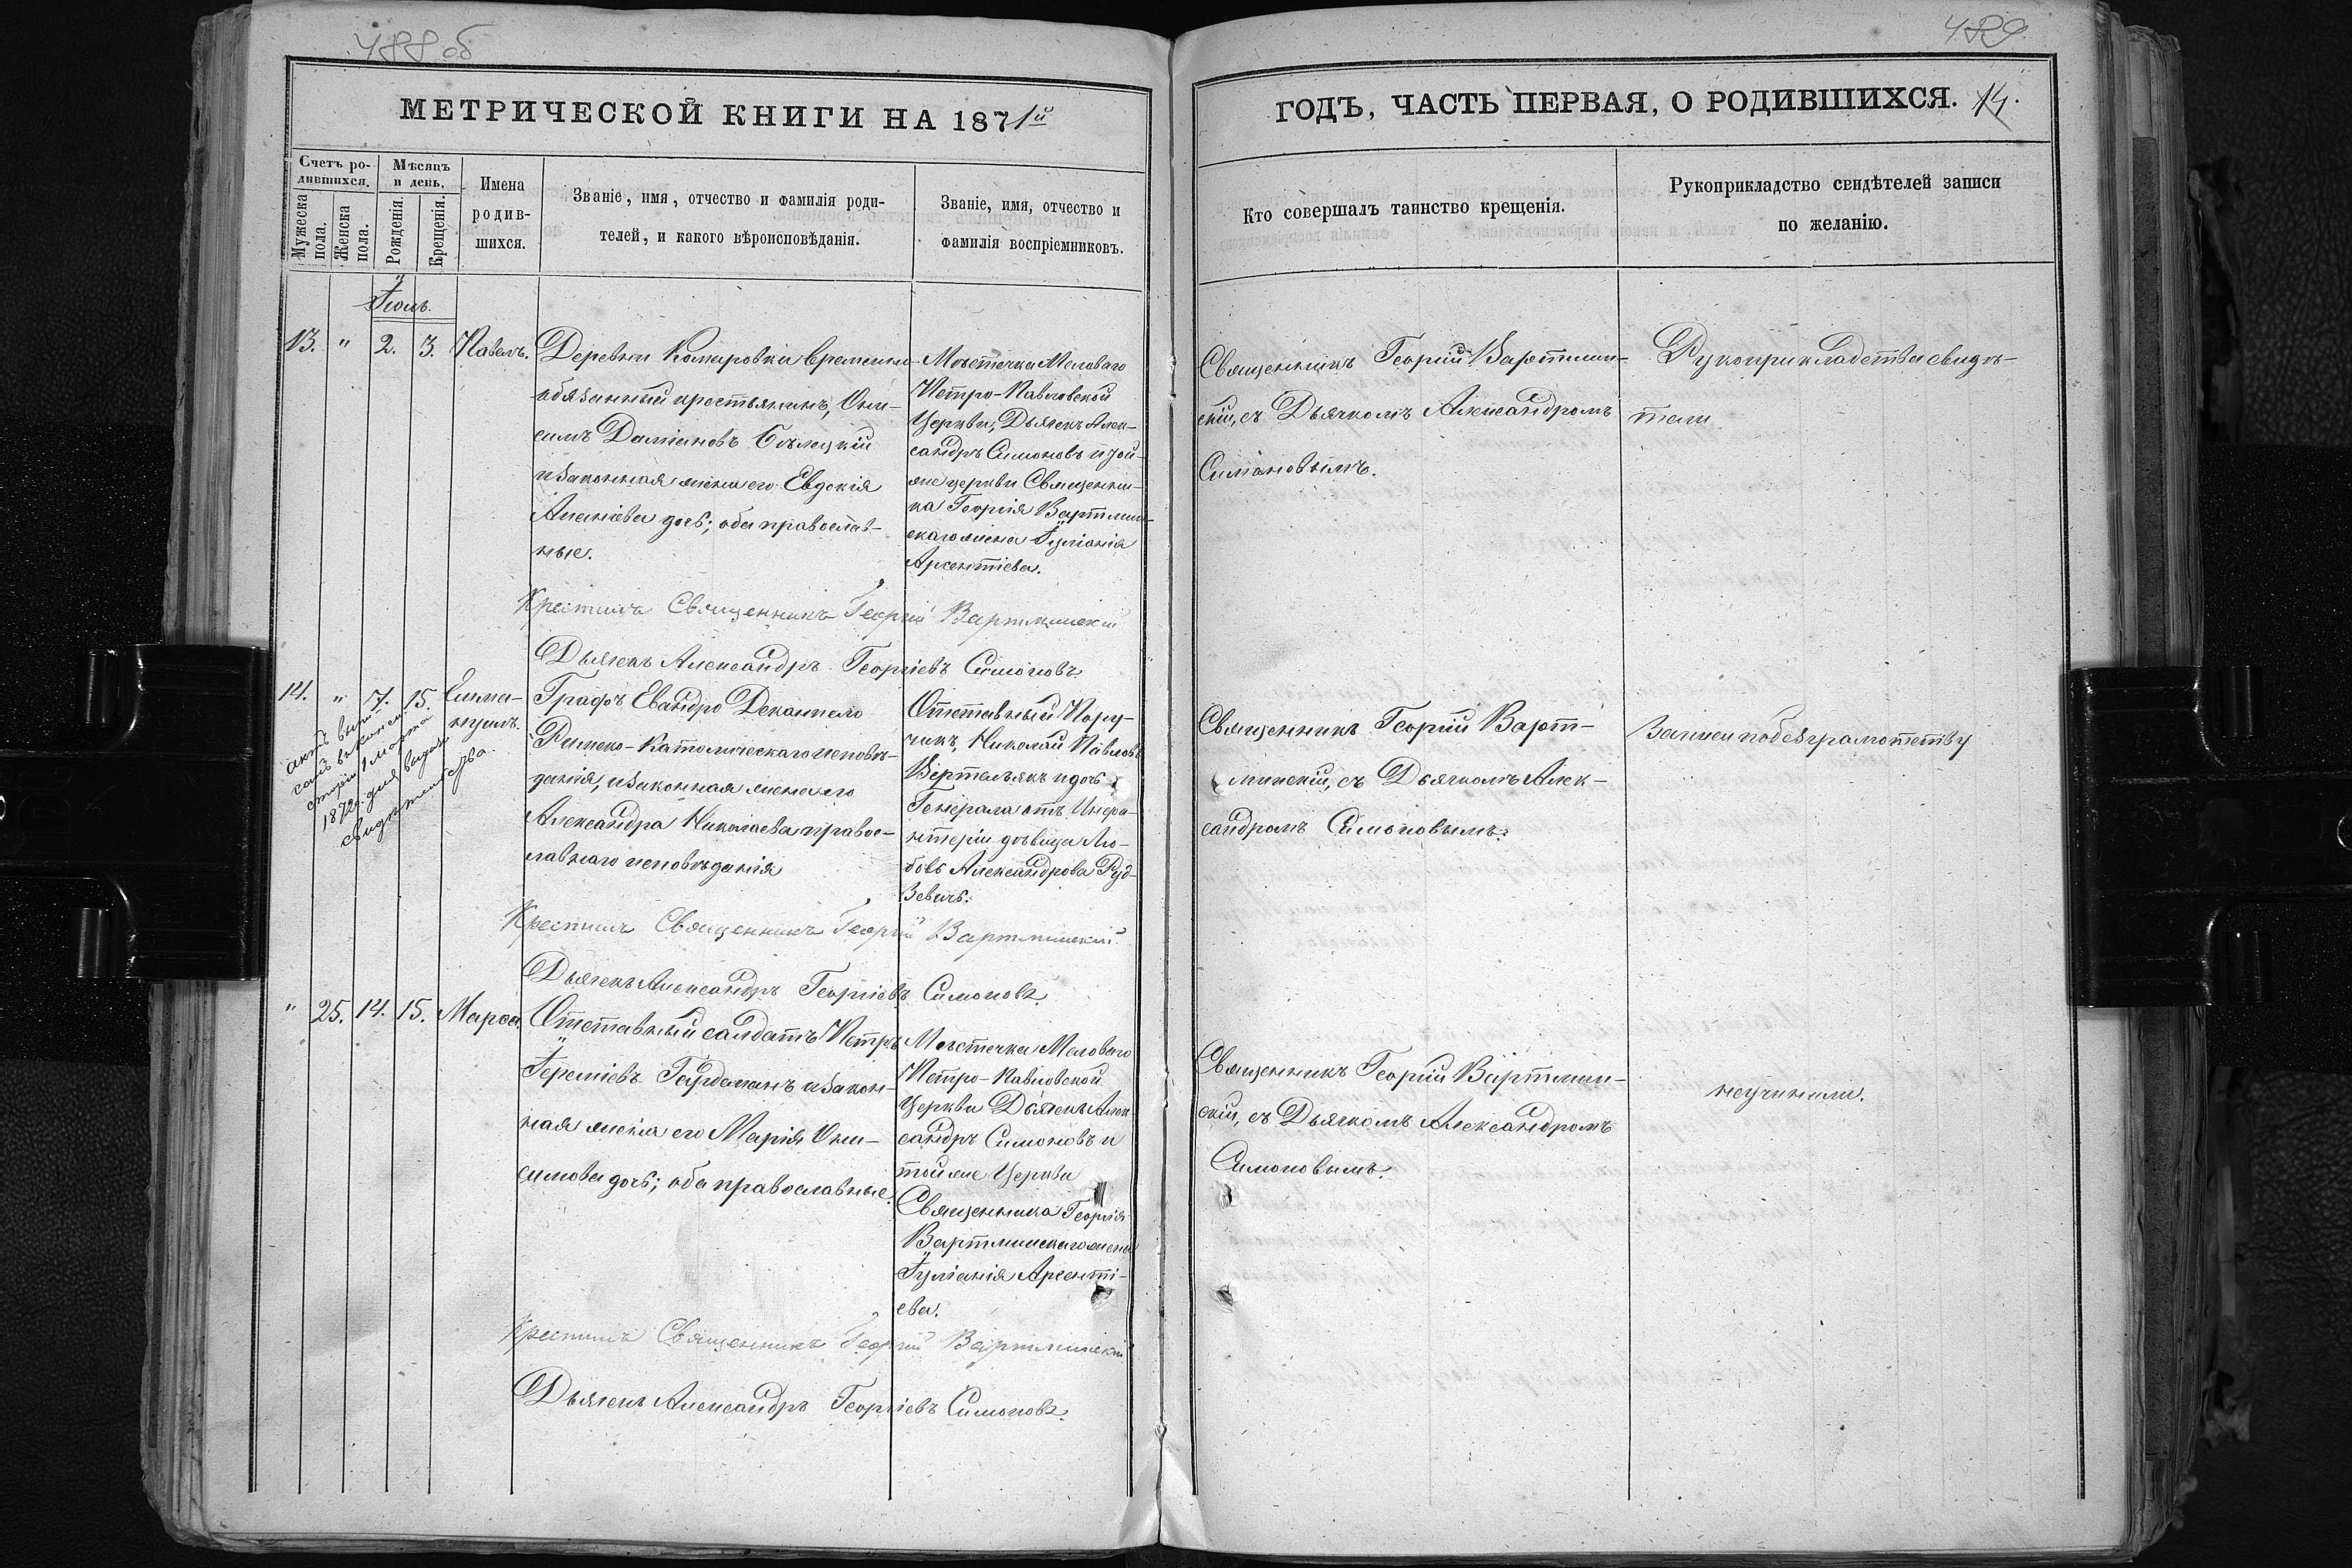 488 об
489
МЕТРИЧЕСКОЙ КНИГИ НА 1871й
ГОДЪ, ЧАСТЬ ПЕРВАЯ, О РОДИВШИХСЯ. 14.
Счетъ ро-
дившихся.
Мужеска
пола.
Женска
пола.
Мѣсяцъ
и день.
Рожденія.
Крещенія.
Имена
родив-
шихся.
Званіе, имя, отчество и фамилія роди-
телей, и какого вѣроисповѣданія.
Званіе, имя, отчество и
фамилія воспріемниковъ.
Кто совершалъ таинство крещенія.
Рукоприкладство свидѣтелей записи
по желанію.
Іюль.
13. " 2. 3. Павелъ.
Деревни Комаровки временно-
обязанный крестьянинъ, Они-
симъ Даміановъ Бѣлецкій
и законная жена его Евдокія
Ананіева дочь; оба православ-
ные.
Мѣстечка Меловаго
Петро-Павловской
Церкви, Дьячекъ Алек-
сандръ Симоновъ и той-
же церкви Священни-
ка Георгія Вартмин-
скаго жена Іуліанія
Арсентіева.
Священникъ Георгій Вартмин-
скій, съ Дьячкомъ Александромъ
Симоновымъ.
Рукоприкладства свидѣ-
тели
Крестилъ Священникъ Георгій Вартминскій
Дьячекъ Александръ Георгіевъ Симоновъ
14. " 7. 15. Емма-
нуилъ.
актъ выпи
санъ
1872 г. дня выдан
свидѣтельства.
Графъ Евандро Декампело
Римско-Католическаго исповѣ-
данія, и законная жена его
Александра Николаева правос-
лавнаго исповѣданія
Отставный Пору-
чикъ, Николай Павловъ
Вертельякъ и дочь
Генерала отъ Инфа-
нтеріи дѣвица Лю-
бовь Александрова Руд-
зевичъ.
Священникъ Георгій Варт-
минскій, съ Дьячкомъ Алек-
сандромъ Симоновымъ.
записи по безграмотству
Крестилъ Священникъ Георгій Вартминскій
Дьячекъ Александръ Георгіевъ Симоновъ.
" 25. 14. 15. Марѳа.
Отставный салдатъ Петръ
Іереміевъ Гардеманъ и закон-
ная жена его Марія Они-
симова дочь; оба православные.
Мѣстечка Меловаго
Петро-Павловской
Церкви Дьячекъ Алек-
сандръ Симоновъ и
той же Церкви
Священника Георгія
Вартминскаго жена
Іуліанія Арсенті-
ева.
Священникъ Георгій Вартмин-
скій, съ Дьячкомъ Александромъ
Симоновымъ.
неучинили.
Крестилъ Священникъ Георгій Вартминскій
Дьячекъ Александръ Георгіевъ Симоновъ.